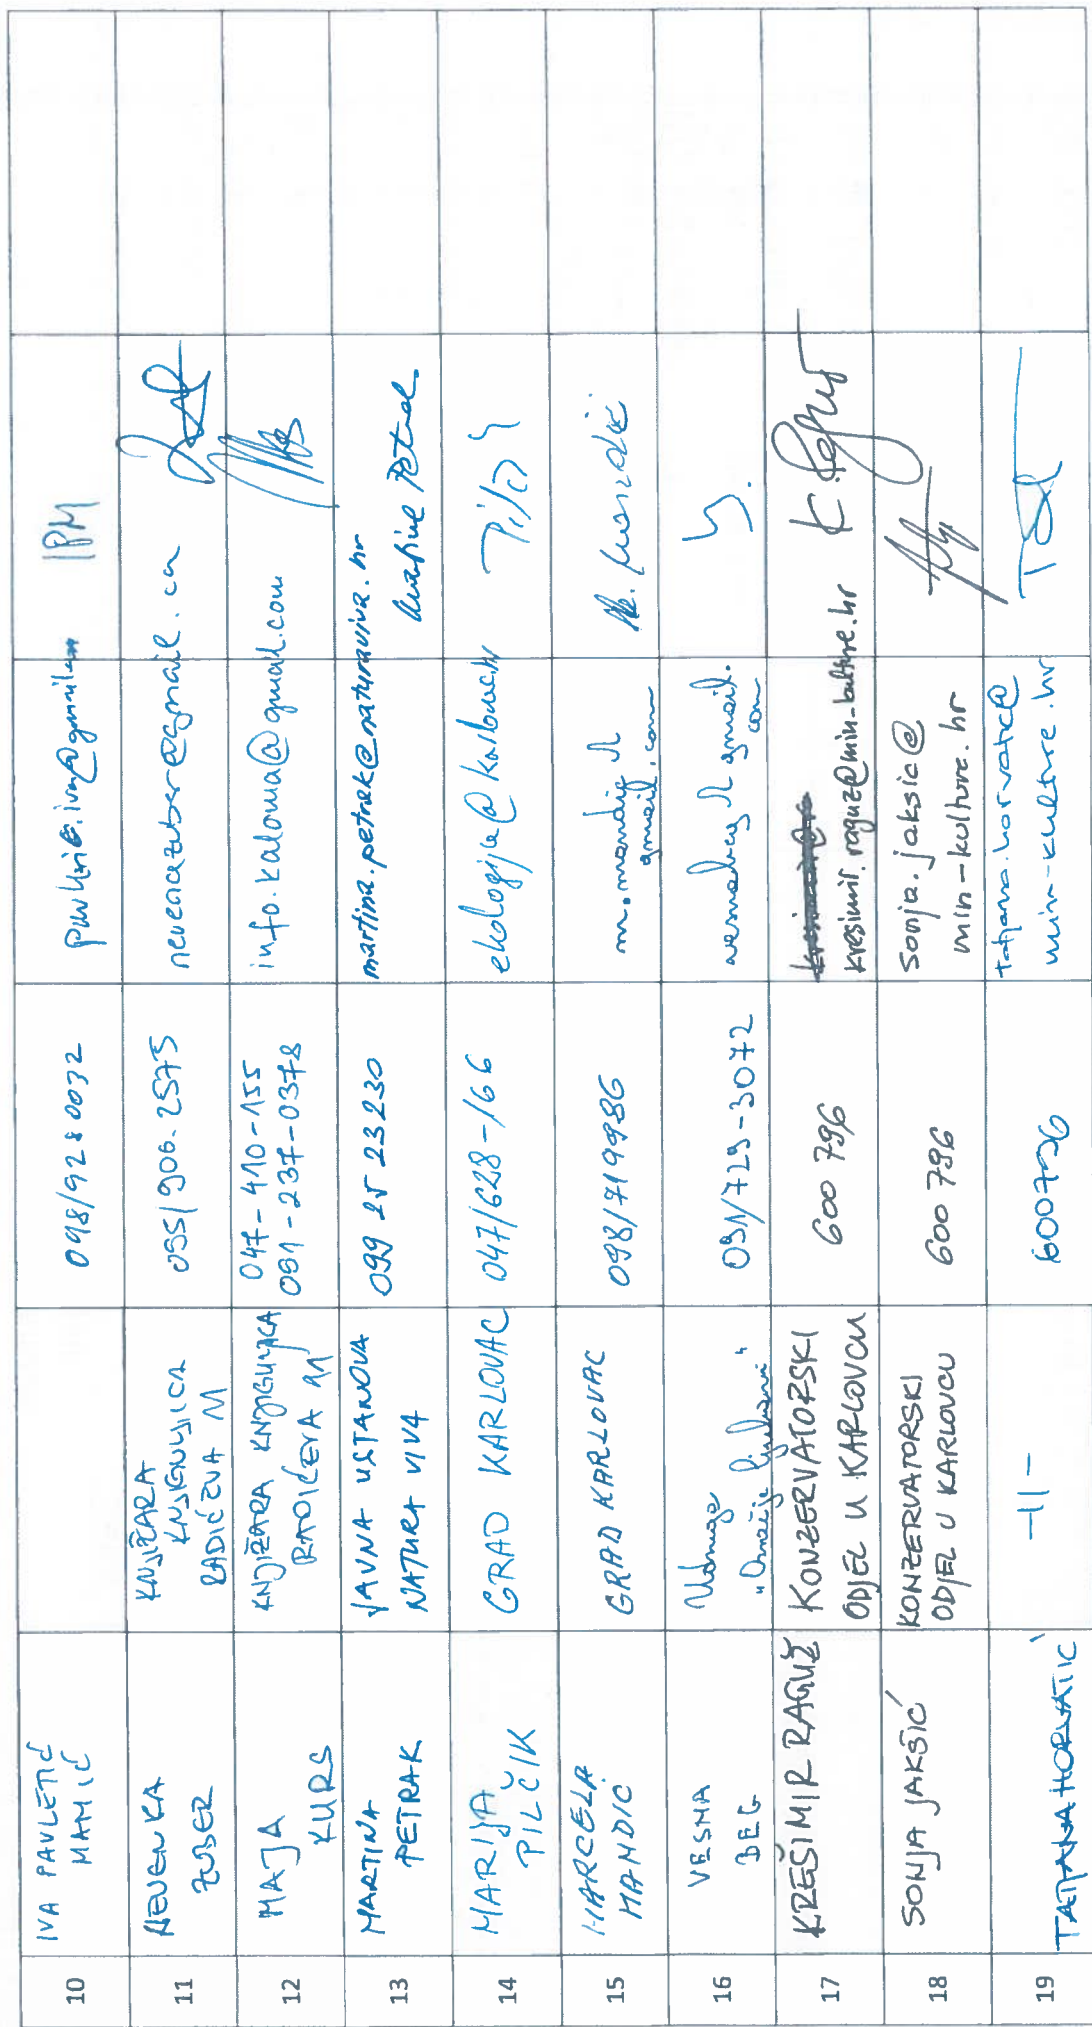 10
IVA PAVLETIĆ
MAMIĆ
098/928 0032
IPM
11
NEVENKA
ZUBER
KNJIŽARA
KNJIGULJICA
RADIĆEVA 11
095/906-2575
nevenazuber@gmail.com
12
MAJA
KURS
KNJIŽARA KNJIGULJICA
RADIĆEVA 11
047-410-155
091-237-0378
info.kalouma@gmail.com
13
MARTINA
PETRAK
JAVNA USTANOVA
NATURA VIVA
099 25 23 230
martina.petrak@naturaviva.hr
Martina Petrak
14
MARIJA
PILČIK
GRAD KARLOVAC
047/628-166
15
MARCELA
MANDIĆ
GRAD KARLOVAC
098/719986
m.mandig
gmail.com
M. Mandić
16
VESNA
BEG
Udruga
091/729-3072
gmail.
com
17
KREŠIMIR RAGUŽ
KONZERVATORSKI
ODJEL U KARLOVCU
600 796
kresimir.raguz@min-kulture.hr
K. Raguž
18
SONJA JAKŠIĆ
KONZERVATORSKI
ODJEL U KARLOVCU
600 796
sonja.jaksic@
min-kulture.hr
19
TATJANA HORVATIĆ
-II-
600796
tatjana.horvatic@
min-kulture.hr